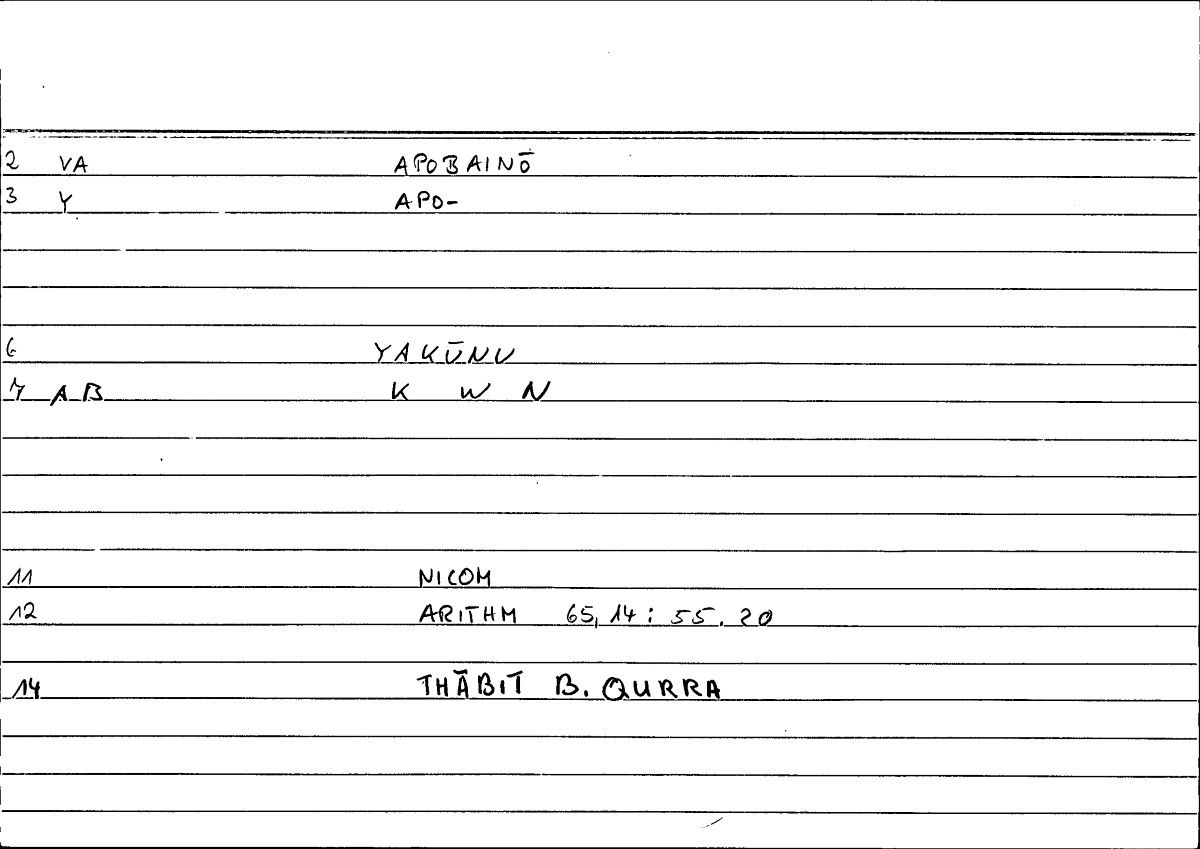 2 VA APOBAINŌ
3 Y APO-
6 YAKŪNU
7 AB K W N
11 NICOM
12 ARITHM 65,14: 55.20
14 THĀBIT B. QURRA